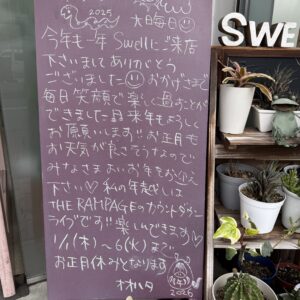 2025
大晦日
今年も一年 Swellにご来店
下さいましてありがとう
ございました おかげさまで
毎日笑顔で楽しく過ごすことが
できました 来年もよろしく
お願いします!! お正月も
お天気が良さそうなので
みなさまよいお年をお迎え
下さい♡ 私の年越しは
THE RAMPAGEのカウントダウン
ライブです!! 楽しんできます
1/1(木)〜6(火)まで
お正月休みとなります
オオハタ
2026
SWE